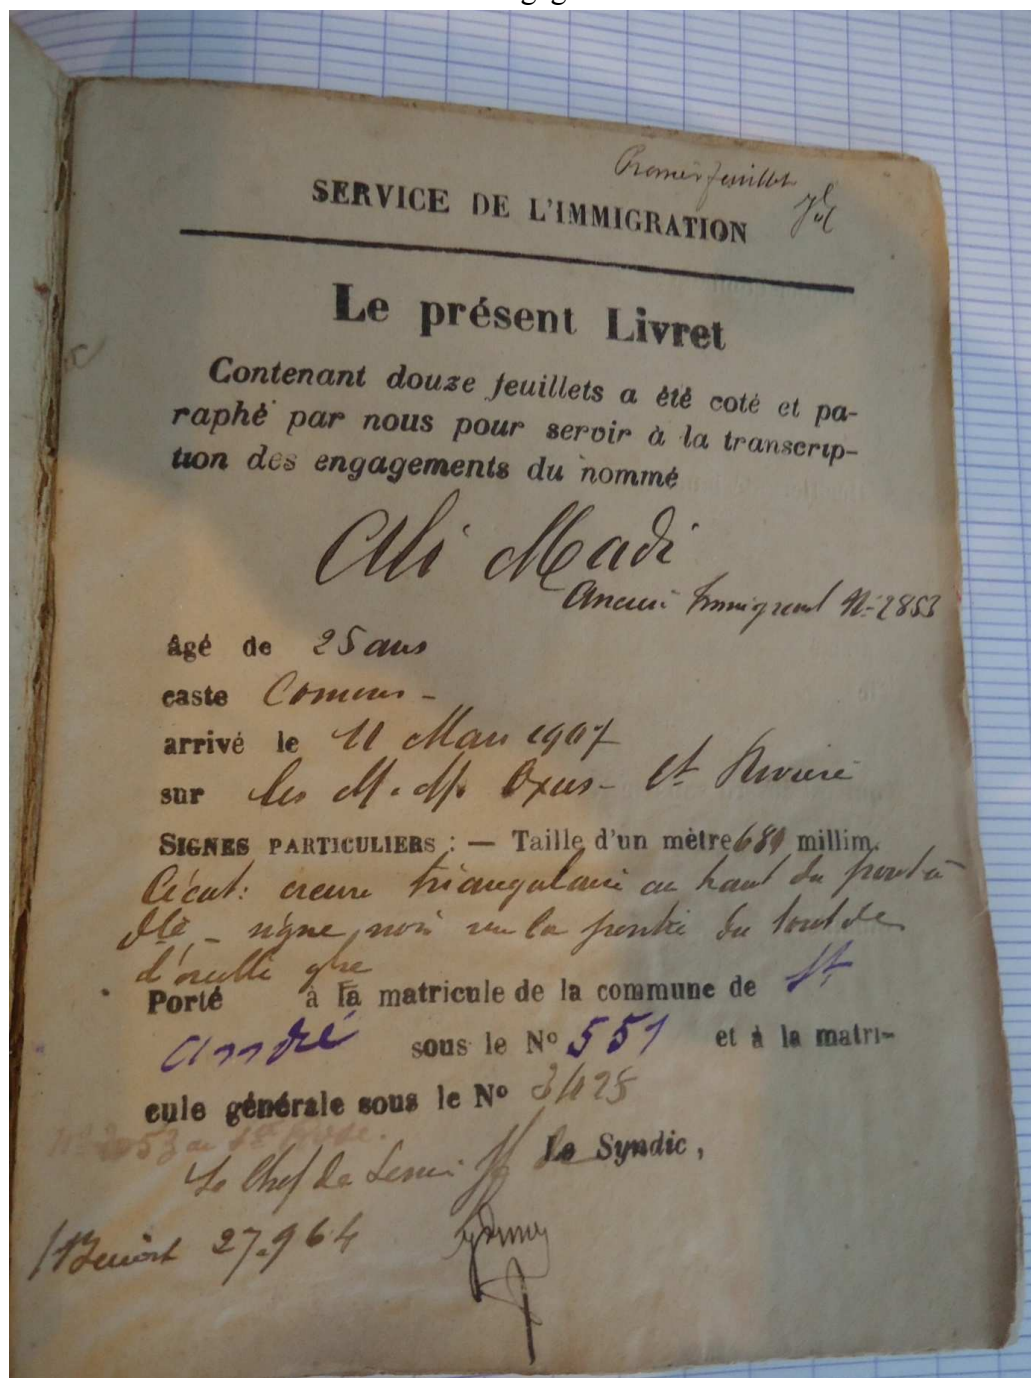 Premier feuillet
SERVICE DE L'IMMIGRATION
Le présent Livret
Contenant douze feuillets a été coté et pa-
raphé par nous pour servir à la transcrip-
tion des engagements du nommé
Ali Madi
Ancien Immigrant N° 2853
âgé de 25 ans
caste Comores -
arrivé le 11 Mars 1907
sur les M. M. Oxus - et Rivière
SIGNES PARTICULIERS : — Taille d'un mètre 680 millim.
Cicat: creuse triangulaire au haut du front à
dte - signe noir sur la du bout de
l'oreille ghe
Porté à la matricule de la commune de St
André sous le N° 551 et à la matri-
cule générale sous le N° 3428
Le Chef de Le Syndic,
St Benoit 27.964